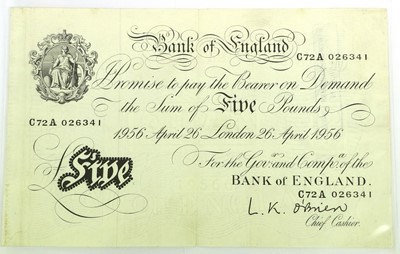 Bank of England
C72A 026341
I Promise to pay the Bearer on Demand
the Sum of Five Pounds
C72A 026341
1956 April 26 London 26 April 1956
For the Govr. and Compa. of the
Five
BANK OF ENGLAND.
C72A 026341
L. K. O'Brien
Chief Cashier.